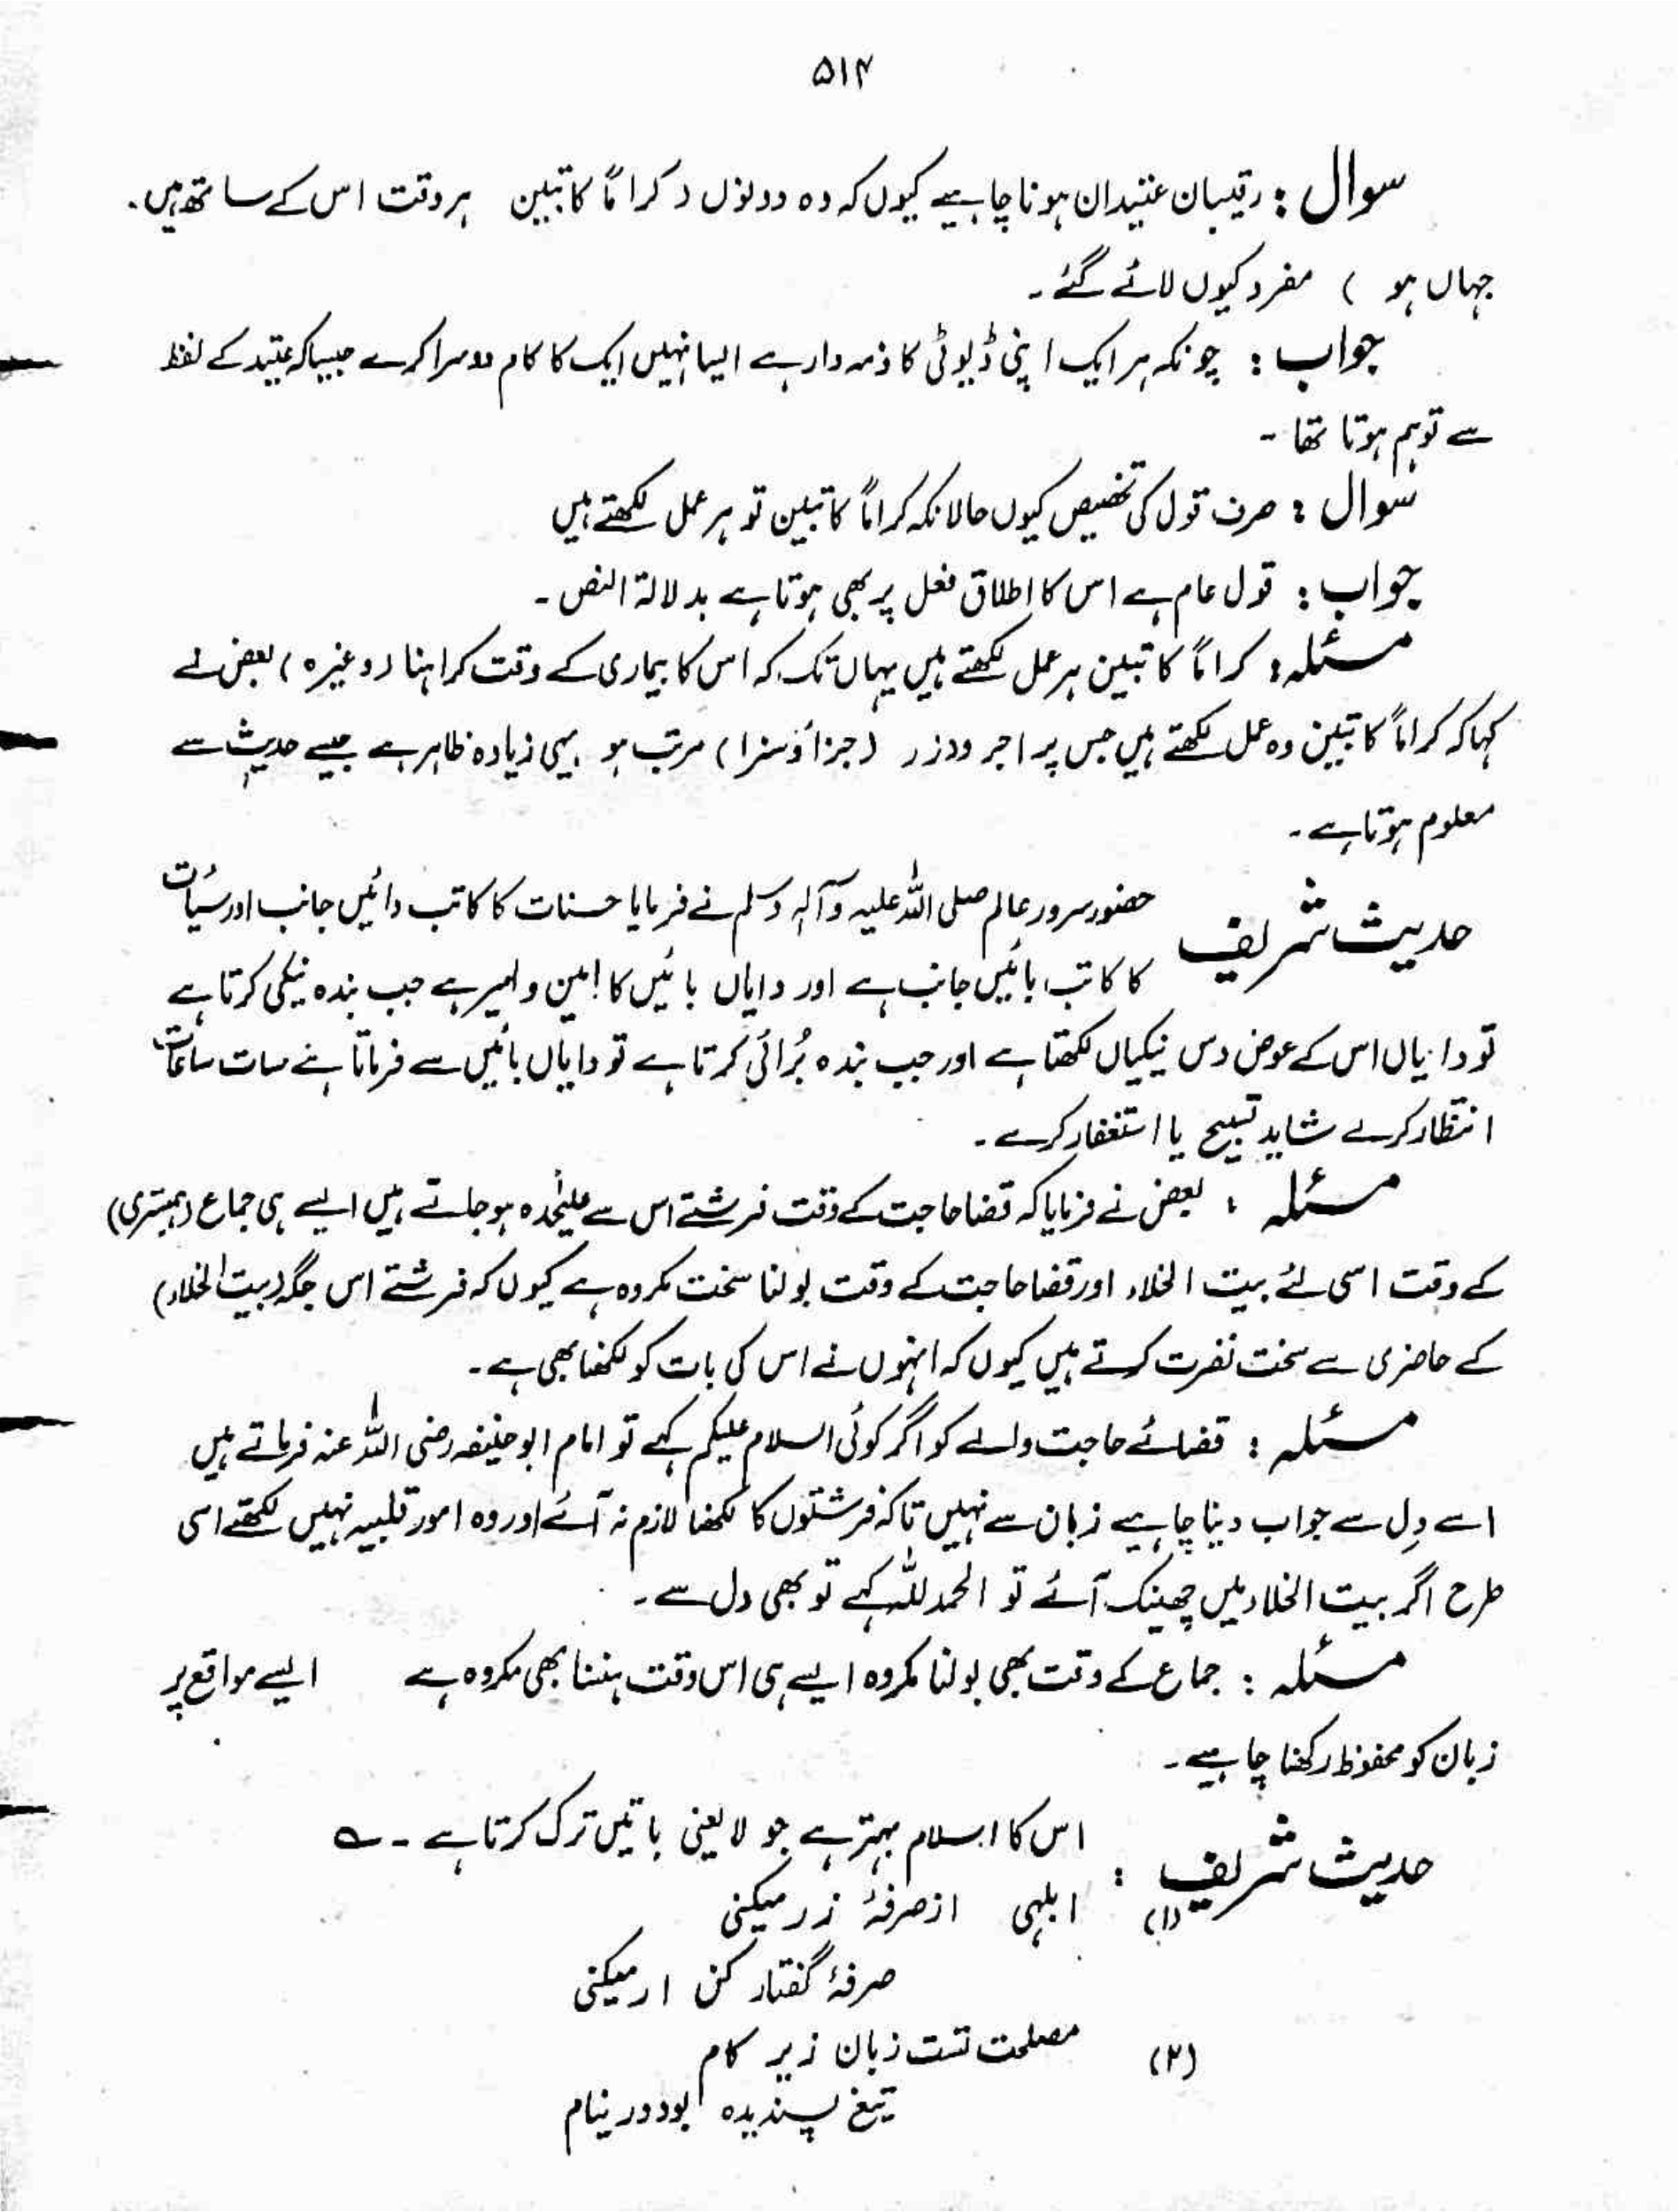 ۵۱۴
سوال : رقیبان عتیدان ہونا چاہیے کیوں کہ وہ دونوں د کراماً کاتبین ہر وقت اس کے ساتھ ہیں .
جہاں ہو ) مفرد کیوں لائے گئے ۔
جواب : چونکہ ہر ایک اپنی ڈیوٹی کا ذمہ دار ہے ایسا نہیں ایک کا کام دوسرا کرے جیسا کہ عتید کے لفظ
سے توہم ہوتا تھا ۔
سوال : صرف قول کی تخصیص کیوں حالانکہ کراماً کاتبین تو ہر عمل لکھتے ہیں
جواب : قول عام ہے اس کا اطلاق فعل پر بھی ہوتا ہے بدلالۃ النص ۔
مسئلہ : کراماً کاتبین ہر عمل لکھتے ہیں یہاں تک کہ اس کا بیماری کے وقت کراہنا (وغیرہ) بعض نے
کہا کہ کراماً کاتبین وہ عمل لکھتے ہیں جس پر اجر ووزر (جزا ؤ سزا) مرتب ہو یہی زیادہ ظاہر ہے جیسے حدیث سے
معلوم ہوتا ہے ۔
حدیث شریف حضور سرور عالم صلی اللہ علیہ وآلہٖ وسلم نے فرمایا حسنات کا کاتب دائیں جانب اور سیئات
کا کاتب بائیں جانب ہے اور دایاں بائیں کا امین و امیر ہے جب بندہ نیکی کرتا ہے
تو دایاں اس کے عوض دس نیکیاں لکھتا ہے اور جب بندہ بُرائی کرتا ہے تو دایاں بائیں سے فرماتا ہے سات ساعات
انتظار کرلے شاید تسبیح یا استغفار کرے ۔
مسئلہ : بعض نے فرمایا کہ قضا حاجت کے وقت فرشتے اس سے علیٰحدہ ہو جاتے ہیں ایسے ہی جماع (ہمبستری)
کے وقت اسی لئے بیت الخلاء اور قضا حاجت کے وقت بولنا سخت مکروہ ہے کیوں کہ فرشتے اس جگہ (بیت الخلاء)
کے حاضری سے سخت نفرت کرتے ہیں کیوں کہ انہوں نے اس کی بات کو لکھنا بھی ہے ۔
مسئلہ : قضائے حاجت والے کو اگر کوئی السلام علیکم کہے تو امام ابو حنیفہ رضی اللہ عنہ فرماتے ہیں
اسے دِل سے جواب دینا چاہیے زبان سے نہیں تاکہ فرشتوں کا لکھنا لازم نہ آئے اور وہ امور قلبیہ نہیں لکھتے اسی
طرح اگر بیت الخلاء میں چھینک آئے تو الحمد للہ کہے تو بھی دل سے ۔
مسئلہ : جماع کے وقت بھی بولنا مکروہ ایسے ہی اس وقت ہنسنا بھی مکروہ ہے ایسے مواقع پر
زبان کو محفوظ رکھنا چاہیے ۔
حدیث شریف : اس کا اسلام بہتر ہے جو لا یعنی باتیں ترک کرتا ہے ۔ ؎
(۱) ابلہی از صرفۂ زر میکنی
صرفۂ گفتار کن ار میکنی
(۲) مصلحت تست زبان زیر کام
تیغ پسندیدہ بود در نیام